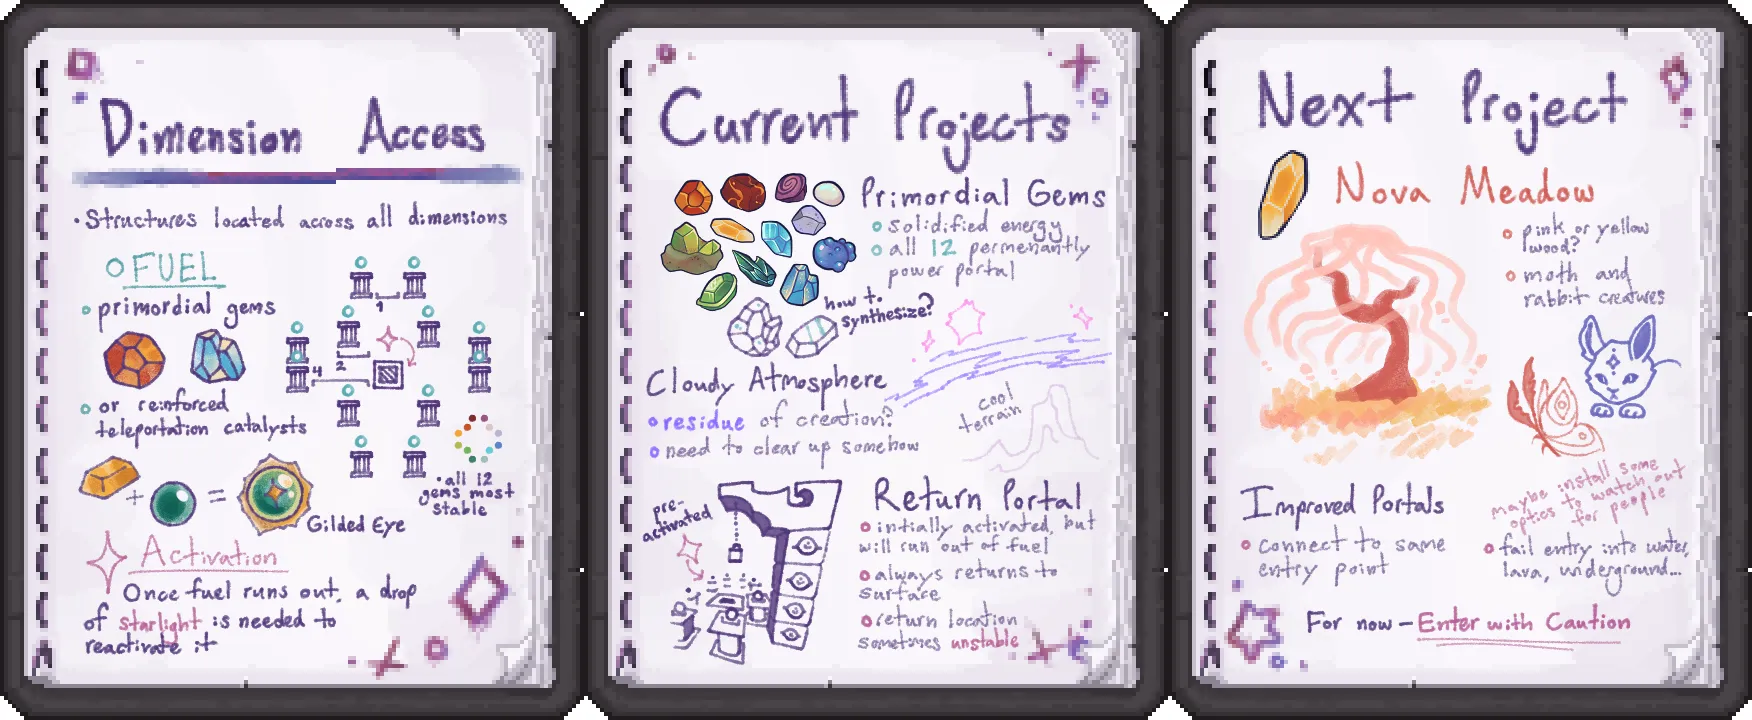 Dimension Access
• Structures located across all dimensions
FUEL
primordial gems
or reinforced
teleportation catalysts
+ =
Gilded Eye
1
2
4
• all 12
gems most
stable
Activation
Once fuel runs out, a drop
of starlight is needed to
reactivate it
Current Projects
Primordial Gems
solidified energy
all 12 permenantly
power portal
how to
synthesize?
Cloudy Atmosphere
residue of creation?
need to clear up somehow
cool
terrain
pre-
activated
Return Portal
intially activated, but
will run out of fuel
always returns to
surface
return location
sometimes unstable
Next Project
Nova Meadow
pink or yellow
wood?
moth and
rabbit creatures
Improved Portals
connect to same
entry point
maybe install some
optics to watch out
for people
fail entry into water,
lava, underground...
For now - Enter with Caution